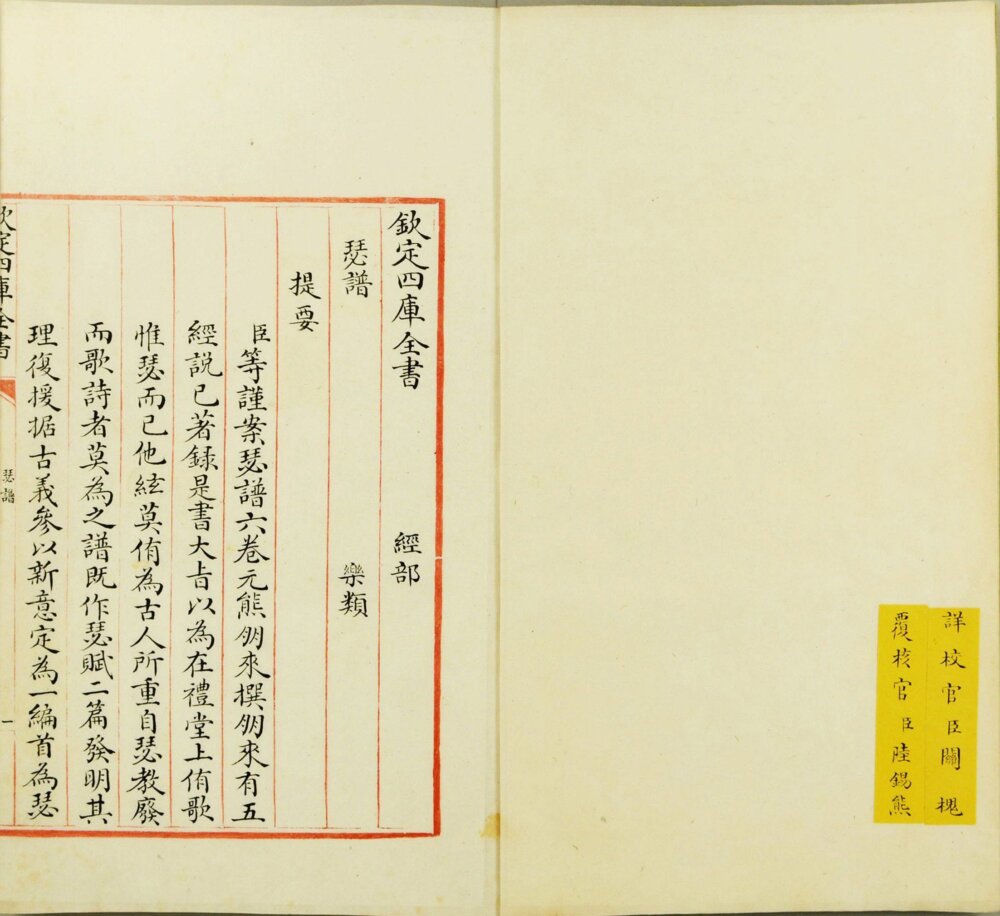 詳校官臣關槐
覆校官臣陸錫熊
欽定四庫全書 經部
瑟譜 樂類
提要
臣等謹案瑟譜六卷元熊朋來撰朋來有五
經説已著録是書大旨以為在禮堂上侑歌
惟瑟而已他絃莫侑為古人所重自瑟教廢
而歌詩者莫為之譜既作瑟賦二篇發明其
理復援据古義參以新意定為一編首為瑟
欽定四庫全書
瑟譜
一